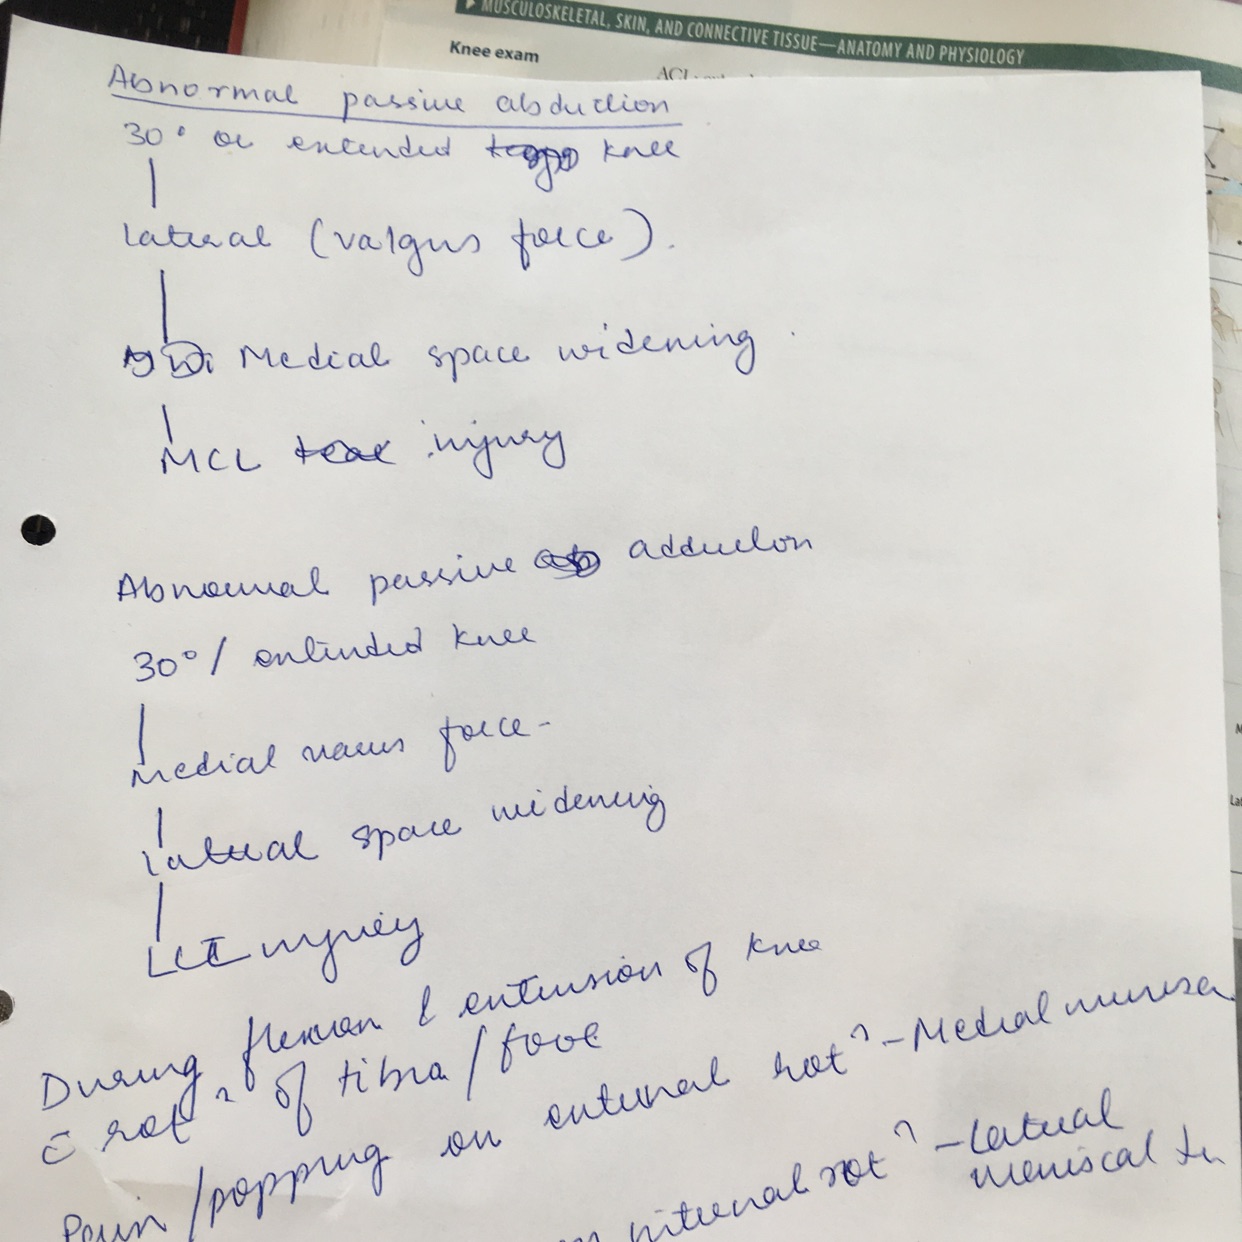 ▶ MUSCULOSKELETAL, SKIN, AND CONNECTIVE TISSUE—ANATOMY AND PHYSIOLOGY
Knee exam
ACL
Abnormal passive abduction
30° or extended knee
Lateral (valgus force).
Medial space widening
MCL tear injury
Abnormal passive adduction
30°/ extended knee
Medial varus force-
Lateral space widening
LCL injury
During flexion & extension of knee
c̄ rotⁿ of tibia/foot
Pain/popping on external rotⁿ - Medial
internal rotⁿ - Lateral
meniscal